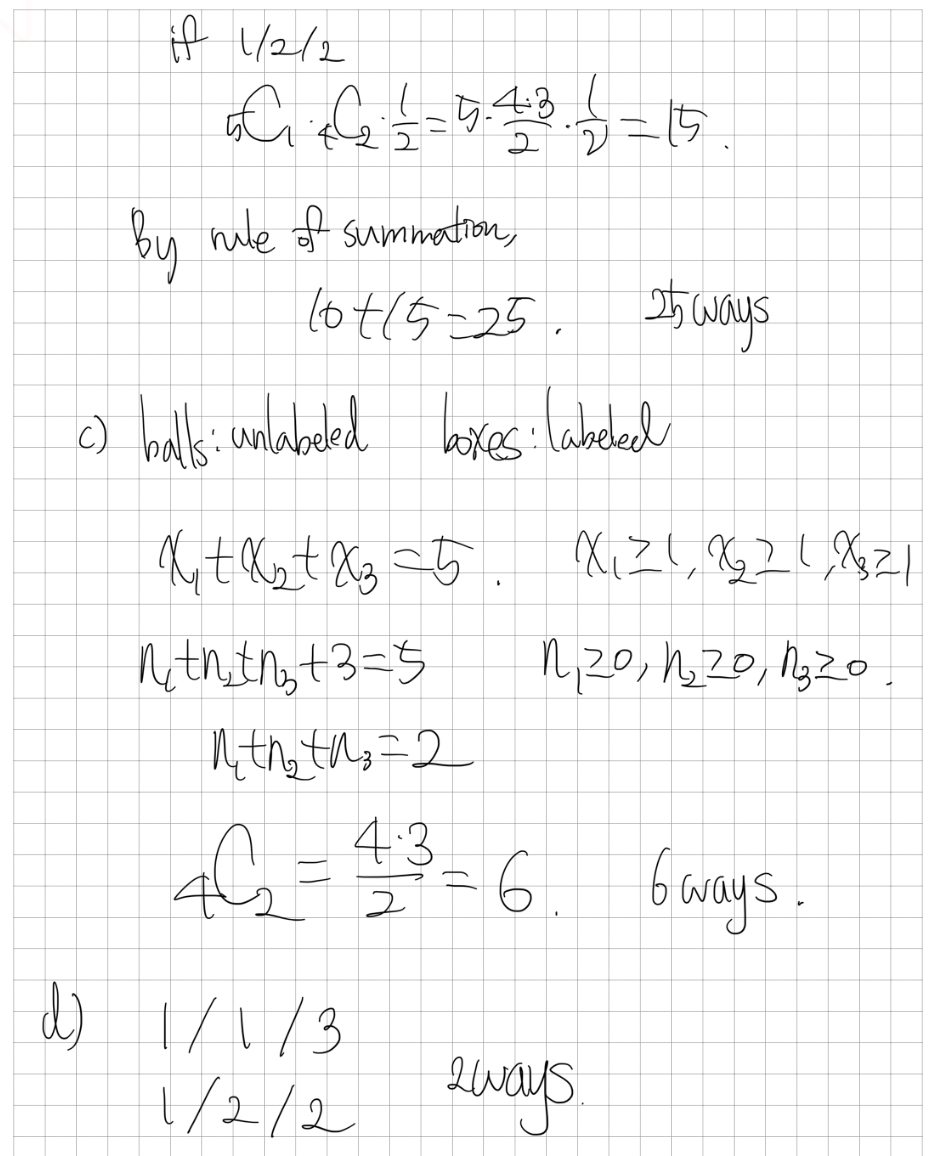 if 1/2/2
₅C₁·₄C₂·1/2=5·4·3/2·1/2=15.
By rule of summation,
10+15=25. 25 ways
c) balls: unlabeled boxes: labeled
x₁+x₂+x₃=5. x₁≥1, x₂≥1, x₃≥1
n₁+n₂+n₃+3=5 n₁≥0, n₂≥0, n₃≥0.
n₁+n₂+n₃=2
₄C₂=4·3/2=6. 6 ways.
d) 1/1/3
1/2/2 2 ways.